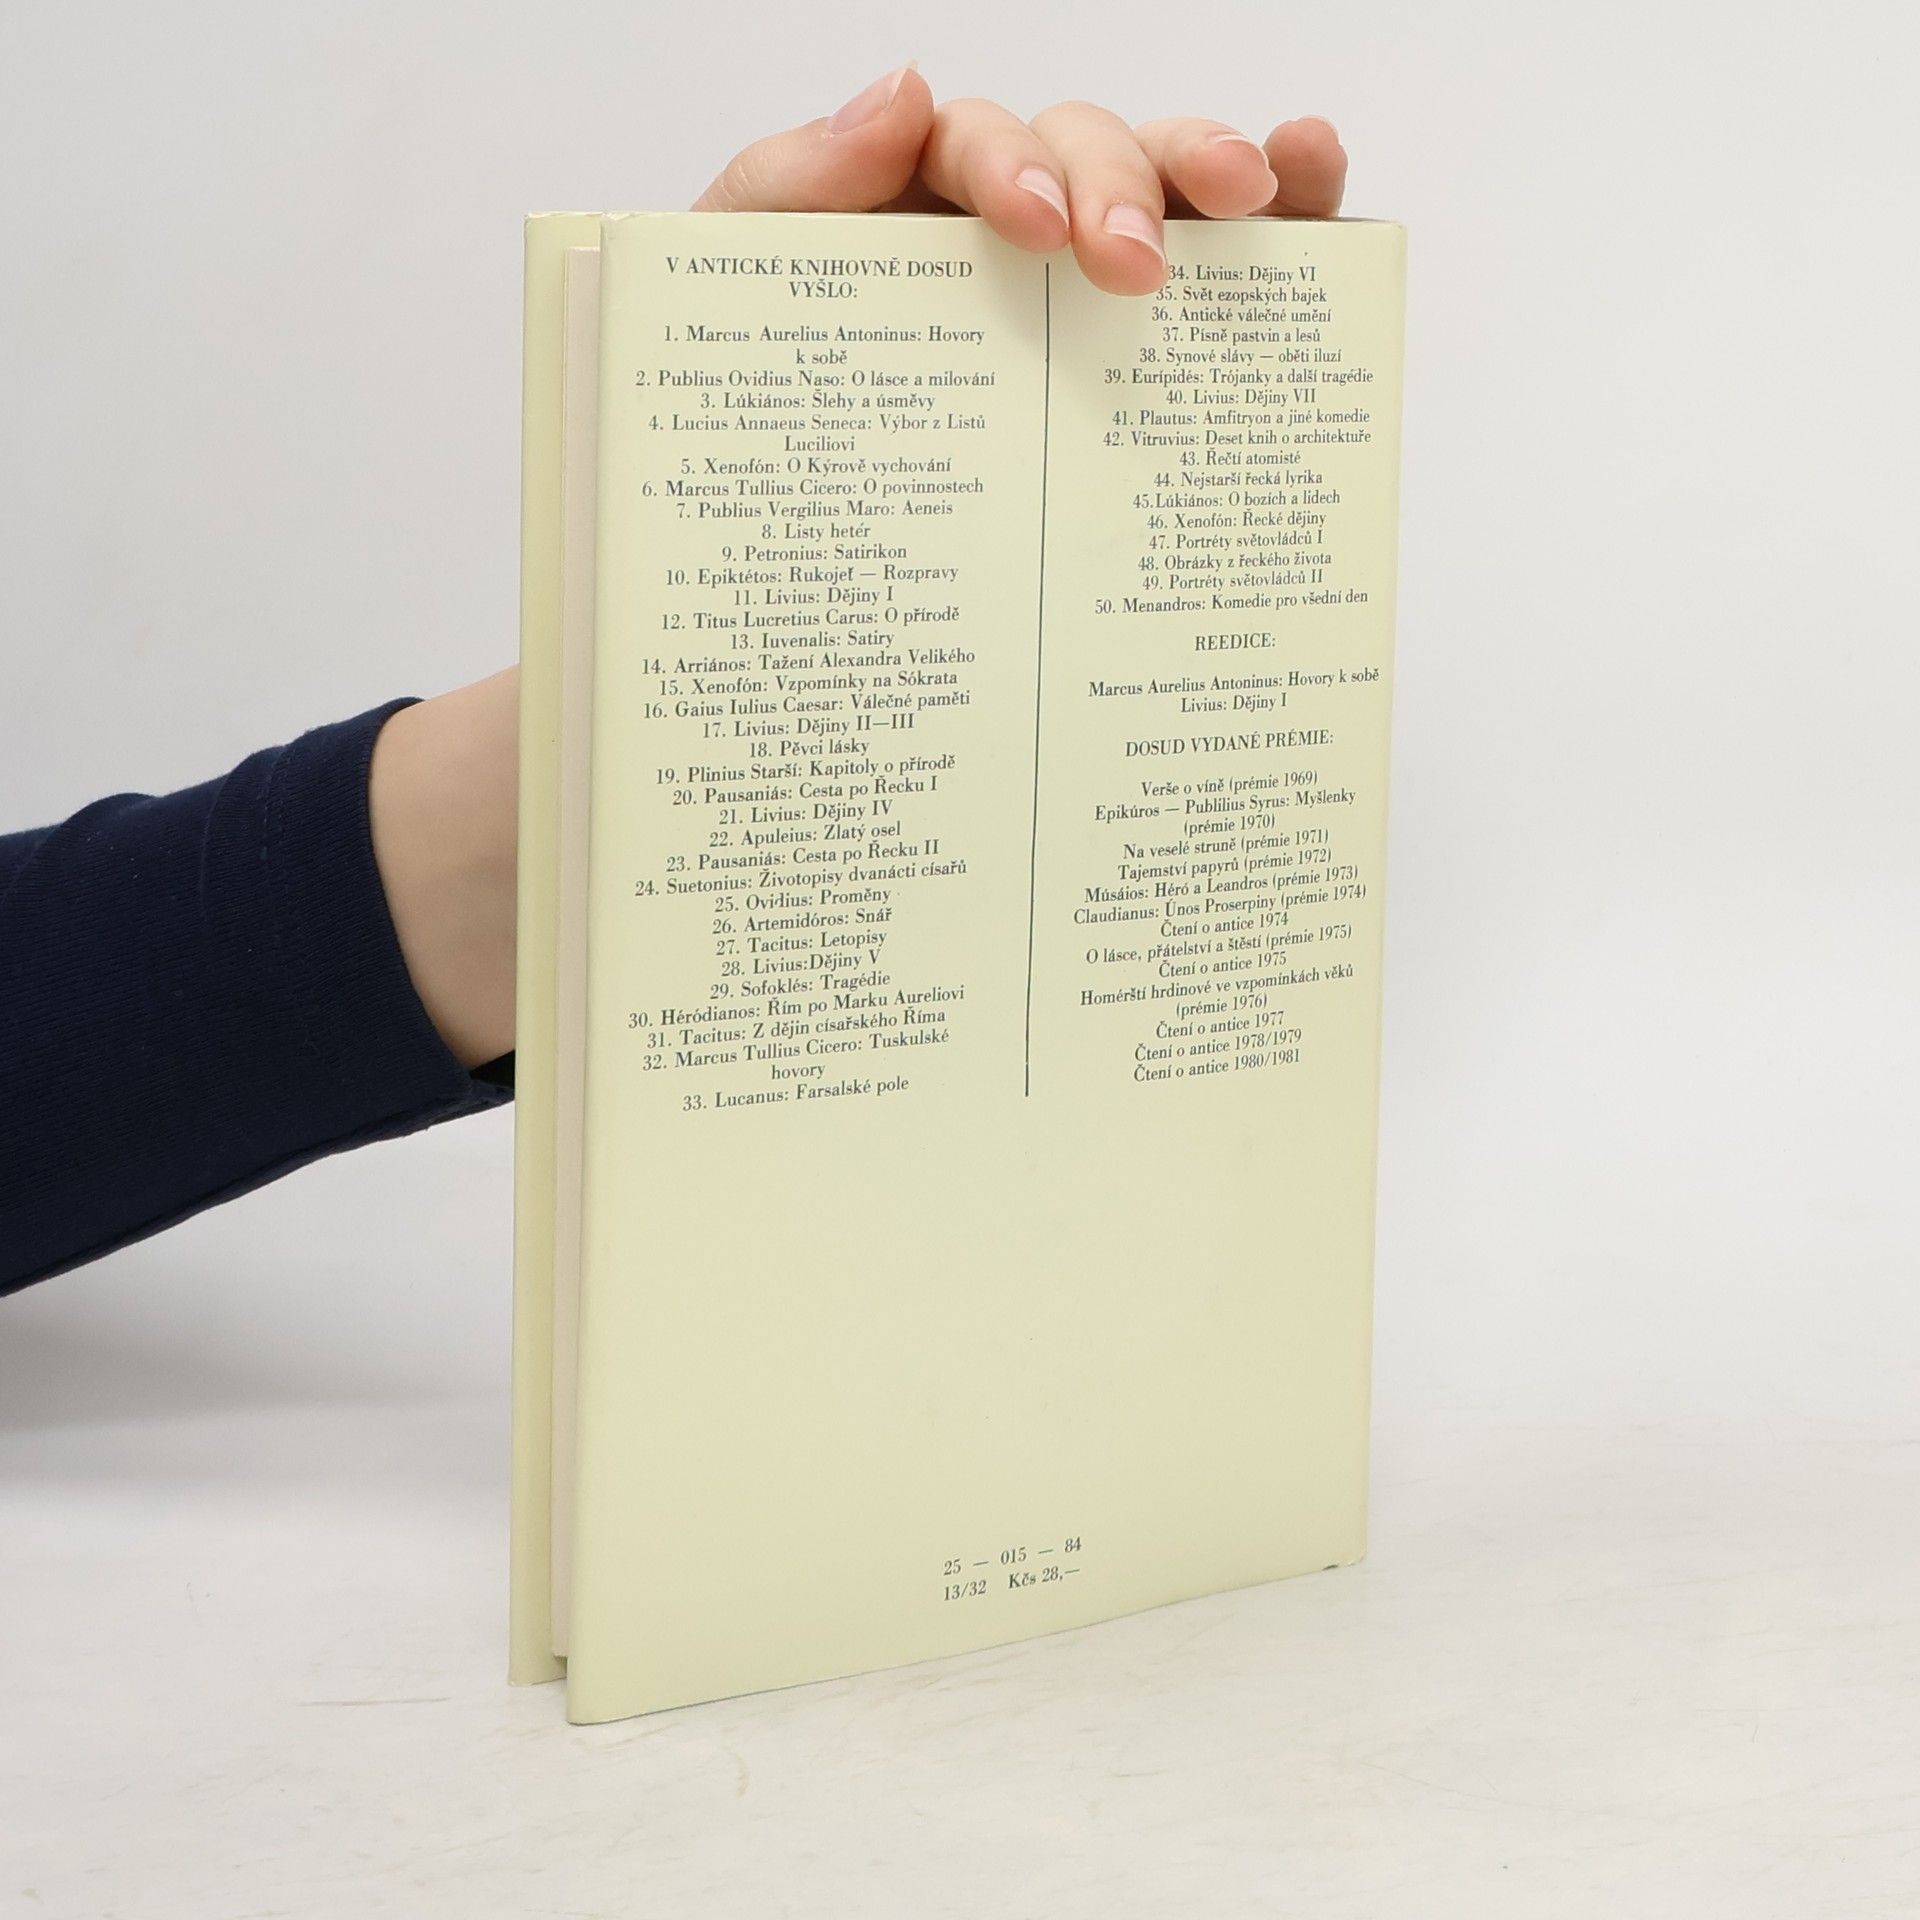 V ANTICKÉ KNIHOVNĚ DOSUD
VYŠLO:
1. Marcus Aurelius Antoninus: Hovory
k sobě
2. Publius Ovidius Naso: O lásce a milování
3. Lúkiános: Šlehy a úsměvy
4. Lucius Annaeus Seneca: Výbor z Listů
Luciliovi
5. Xenofón: O Kýrově vychování
6. Marcus Tullius Cicero: O povinnostech
7. Publius Vergilius Maro: Aeneis
8. Listy hetér
9. Petronius: Satirikon
10. Epiktétos: Rukojeť — Rozpravy
11. Livius: Dějiny I
12. Titus Lucretius Carus: O přírodě
13. Iuvenalis: Satiry
14. Arriános: Tažení Alexandra Velikého
15. Xenofón: Vzpomínky na Sókrata
16. Gaius Iulius Caesar: Válečné paměti
17. Livius: Dějiny II—III
18. Pěvci lásky
19. Plinius Starší: Kapitoly o přírodě
20. Pausaniás: Cesta po Řecku I
21. Livius: Dějiny IV
22. Apuleius: Zlatý osel
23. Pausaniás: Cesta po Řecku II
24. Suetonius: Životopisy dvanácti císařů
25. Ovidius: Proměny
26. Artemidóros: Snář
27. Tacitus: Letopisy
28. Livius:Dějiny V
29. Sofoklés: Tragédie
30. Héródianos: Řím po Marku Aureliovi
31. Tacitus: Z dějin císařského Říma
32. Marcus Tullius Cicero: Tuskulské
hovory
33. Lucanus: Farsalské pole
34. Livius: Dějiny VI
35. Svět ezopských bajek
36. Antické válečné umění
37. Písně pastvin a lesů
38. Synové slávy — oběti iluzí
39. Eurípidés: Trójanky a další tragédie
40. Livius: Dějiny VII
41. Plautus: Amfitryon a jiné komedie
42. Vitruvius: Deset knih o architektuře
43. Řečtí atomisté
44. Nejstarší řecká lyrika
45.Lúkiános: O bozích a lidech
46. Xenofón: Řecké dějiny
47. Portréty světovládců I
48. Obrázky z řeckého života
49. Portréty světovládců II
50. Menandros: Komedie pro všední den
REEDICE:
Marcus Aurelius Antoninus: Hovory k sobě
Livius: Dějiny I
DOSUD VYDANÉ PRÉMIE:
Verše o víně (prémie 1969)
Epikúros — Publilius Syrus: Myšlenky
(prémie 1970)
Na veselé struně (prémie 1971)
Tajemství papyrů (prémie 1972)
Músáios: Héró a Leandros (prémie 1973)
Claudianus: Únos Proserpiny (prémie 1974)
Čtení o antice 1974
O lásce, přátelství a štěstí (prémie 1975)
Čtení o antice 1975
Homérští hrdinové ve vzpomínkách věků
(prémie 1976)
Čtení o antice 1977
Čtení o antice 1978/1979
Čtení o antice 1980/1981
25 — 015 — 84
13/32 Kčs 28,—